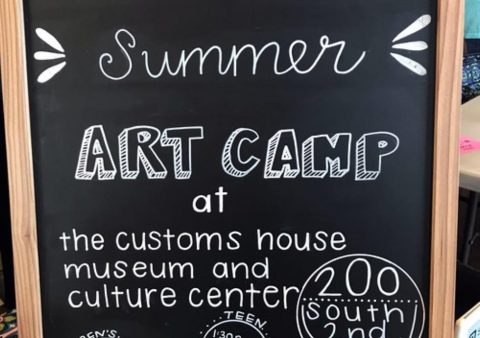 Summer
ART CAMP
at
the customs house
museum and
culture center
200
south
2nd
TEEN
1:30